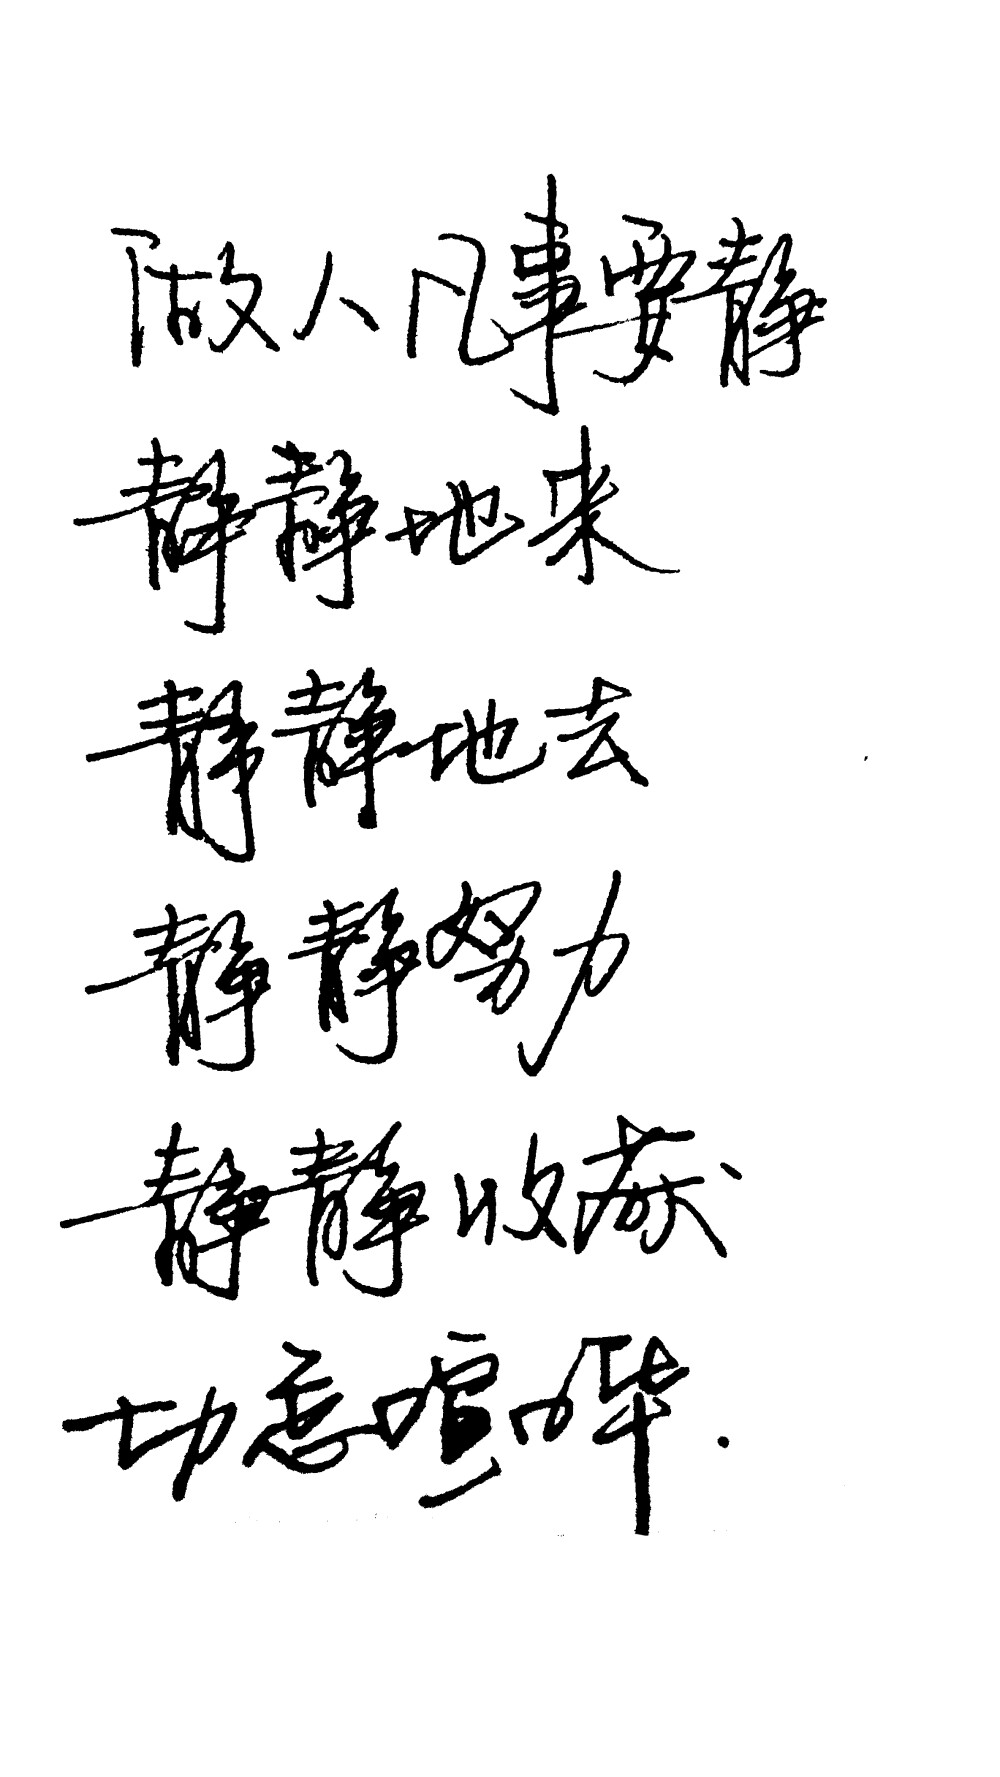 做人凡事要静
静静地来
静静地去
静静努力
静静收获
切忌喧哗.